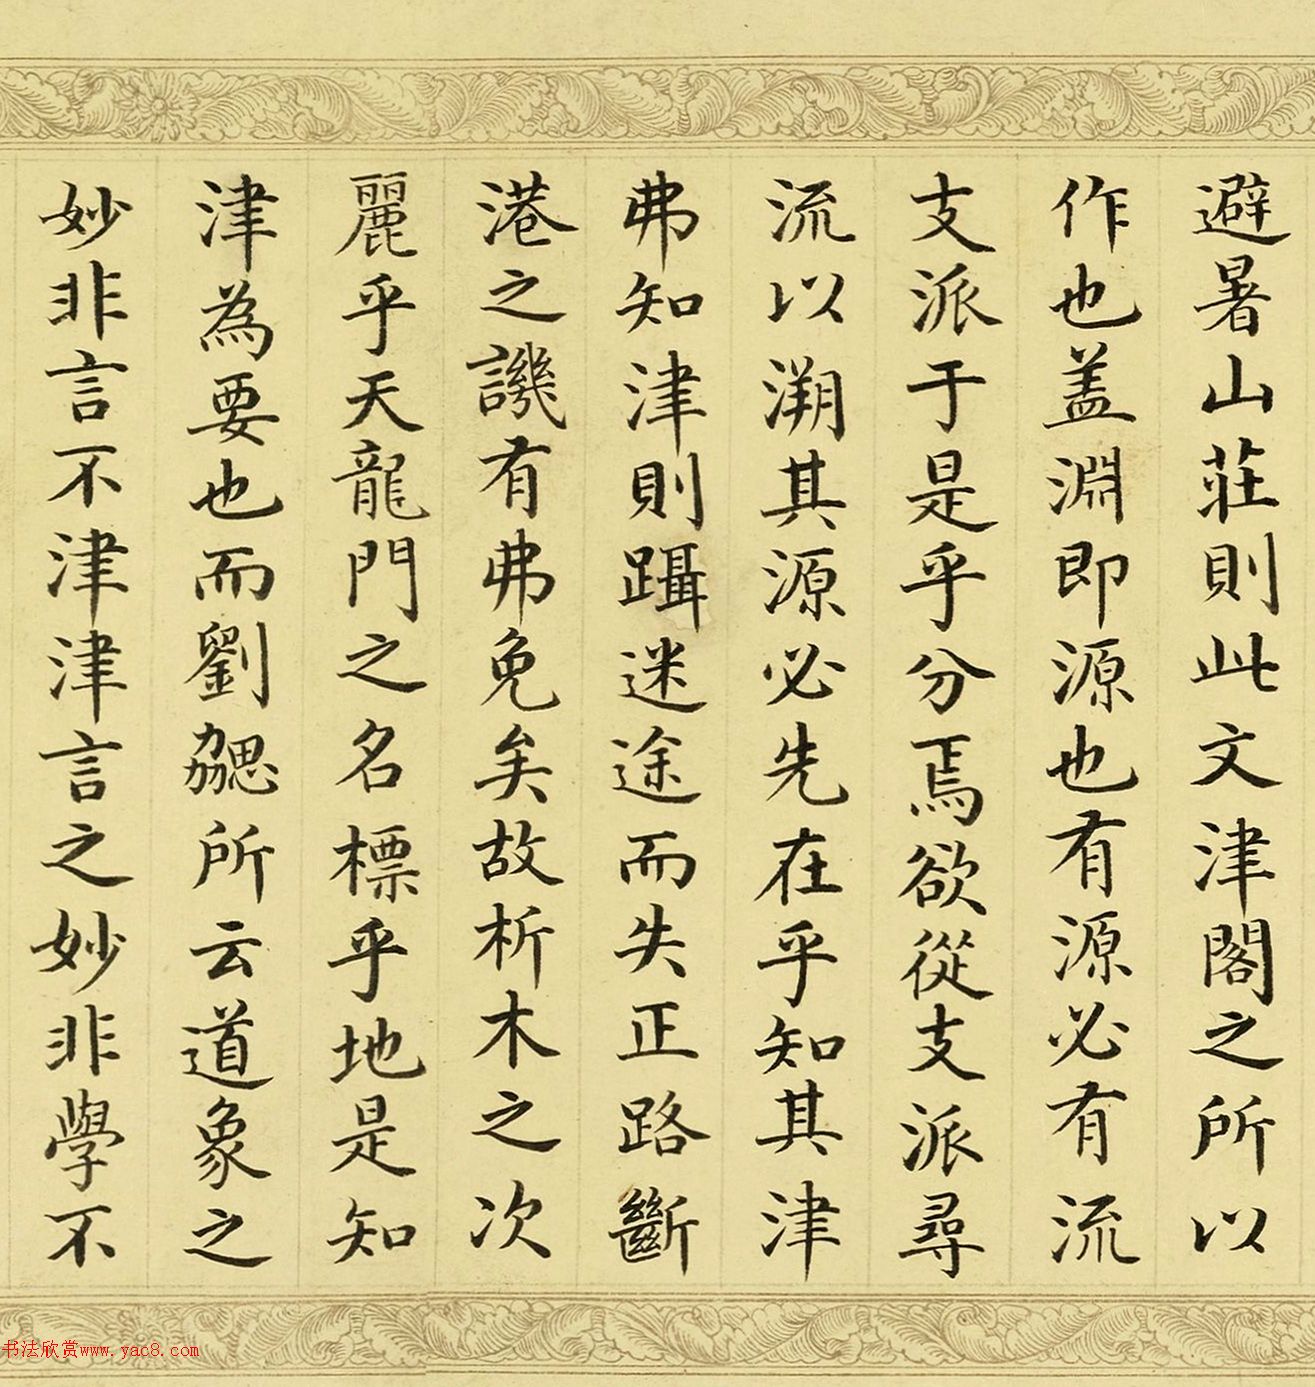 避暑山莊則此文津閣之所以
作也蓋淵即源也有源必有流
支派于是乎分焉欲從支派尋
流以溯其源必先在乎知其津
弗知津則躡迷途而失正路斷
港之譏有弗免矣故析木之次
麗乎天龍門之名標乎地是知
津為要也而劉勰所云道象之
妙非言不津津言之妙非學不
书法欣赏www.yac8.com